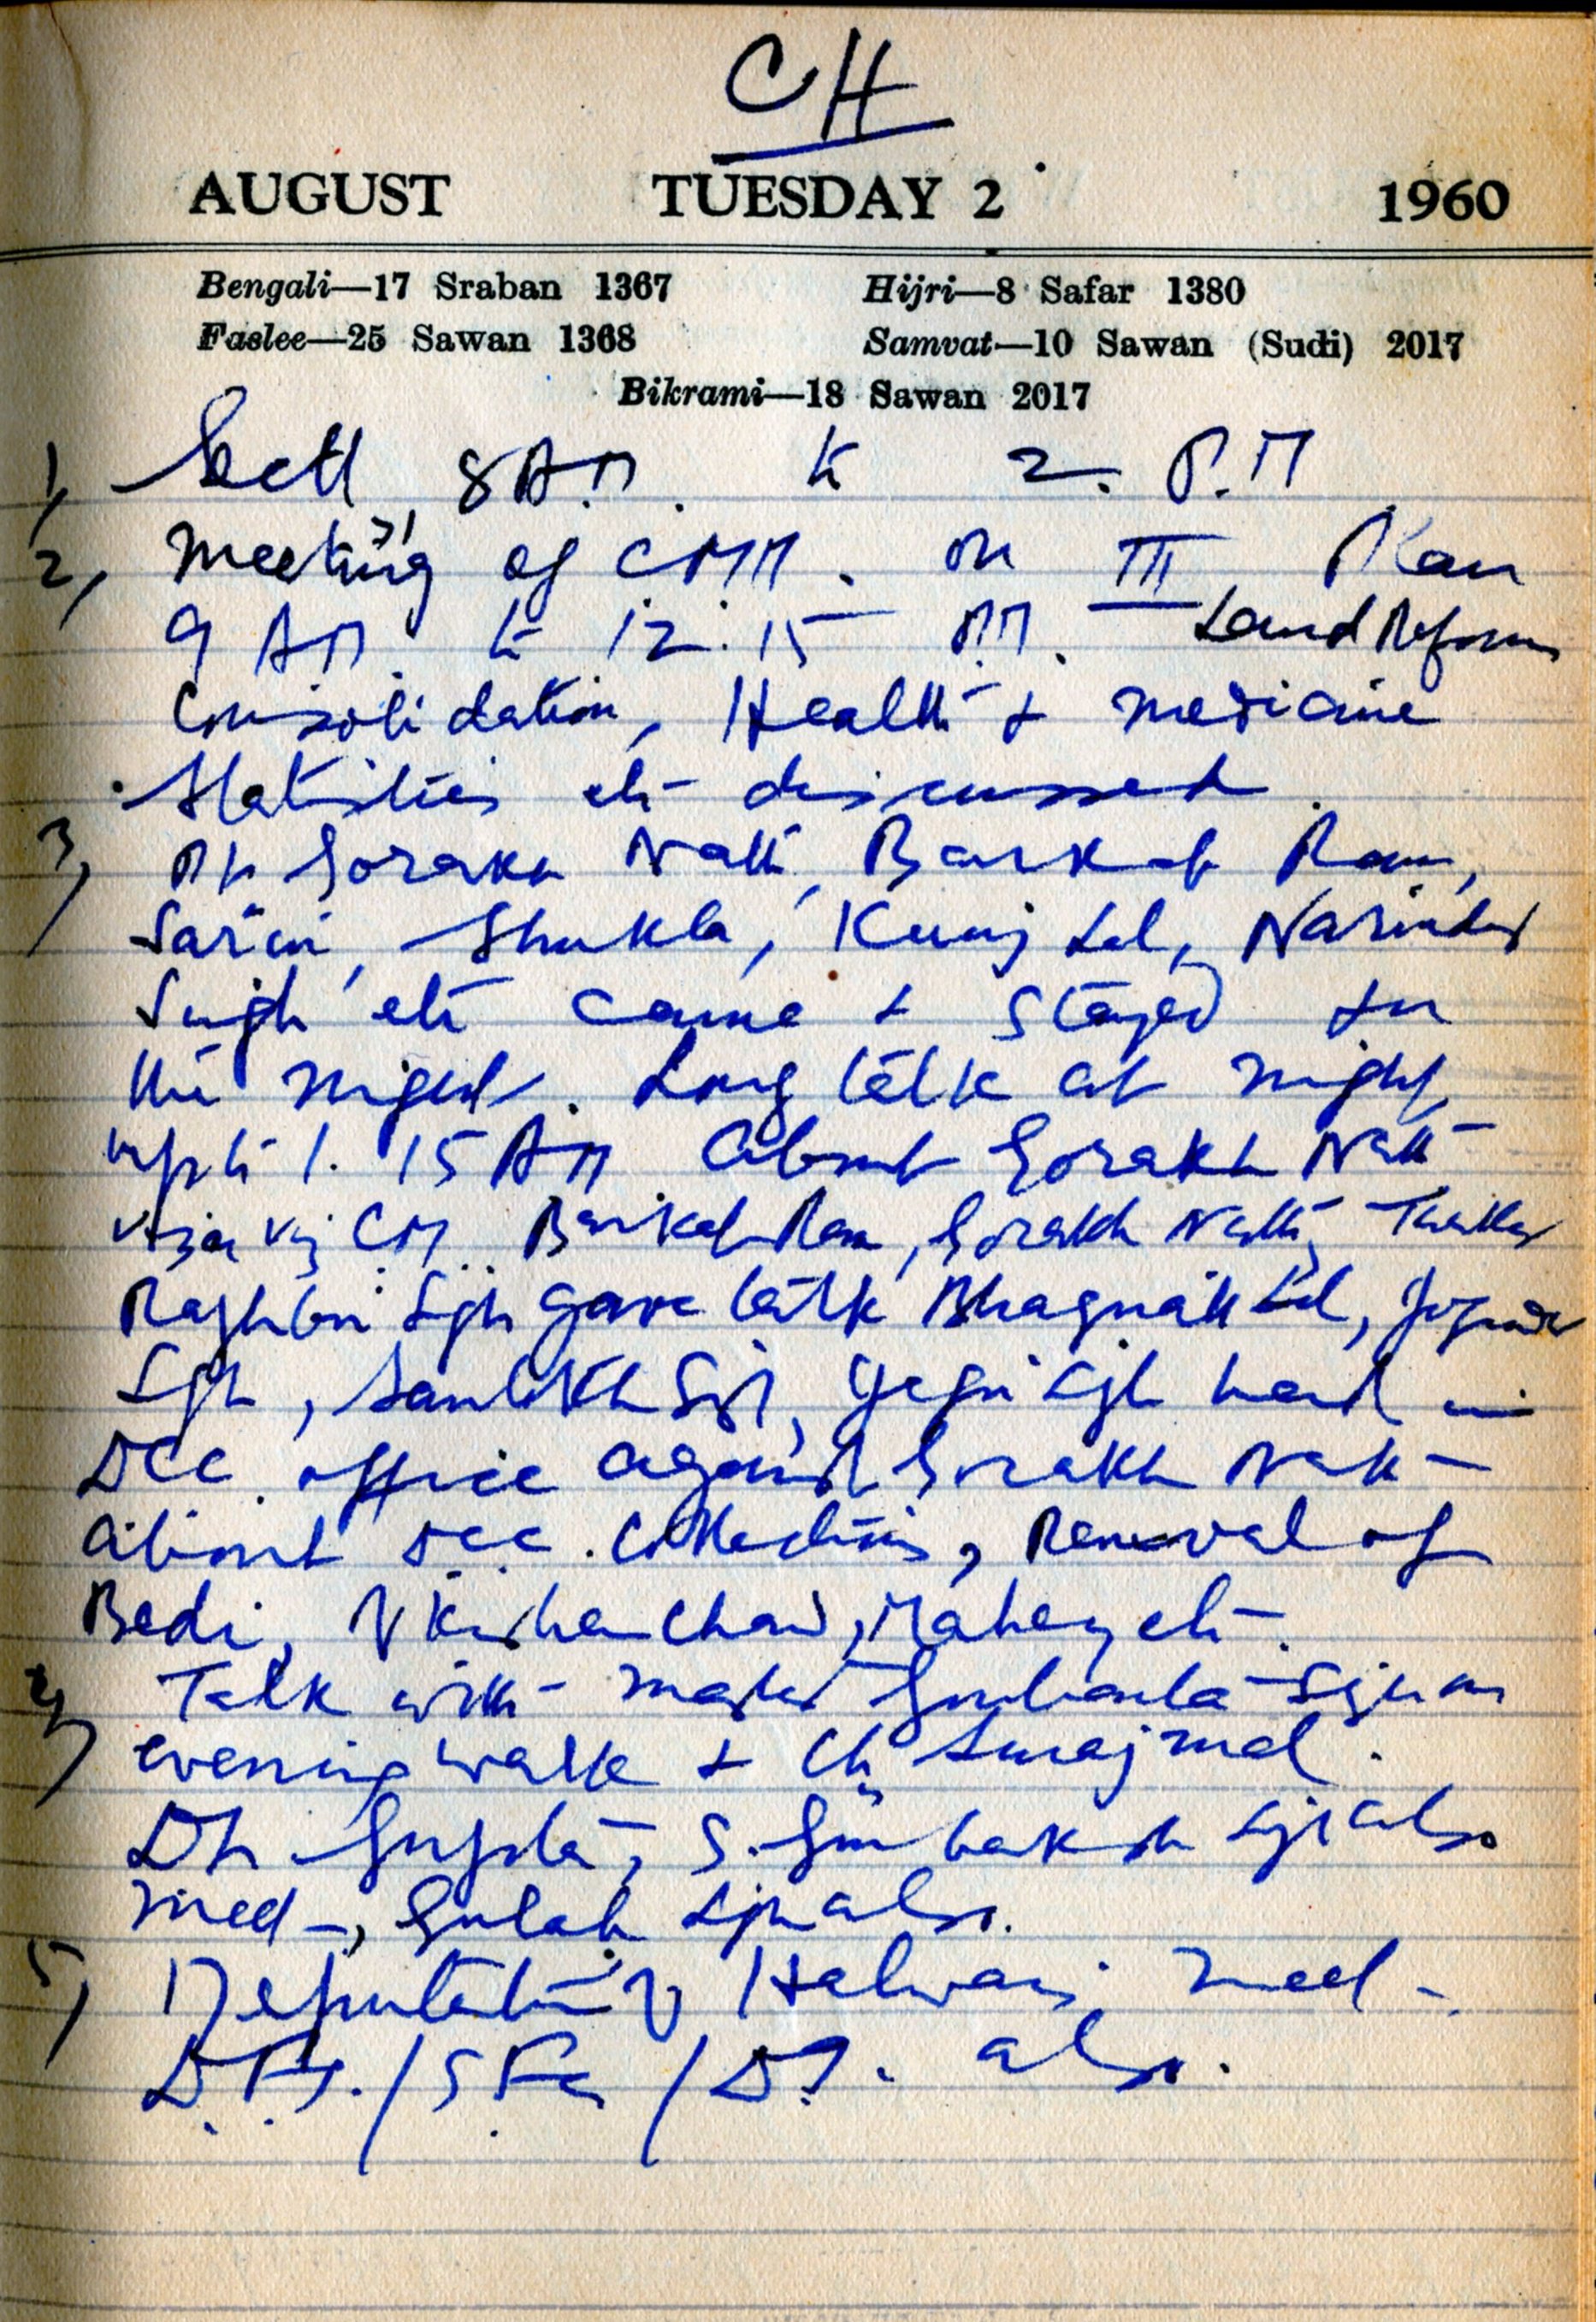 CH
AUGUST TUESDAY 2 1960
Bengali—17 Sraban 1367 Hijri—8 Safar 1380
Faslee—25 Sawan 1368 Samvat—10 Sawan (Sudi) 2017
Bikrami—18 Sawan 2017
1, Sectt 8 A.M. to 2. P.M
2, Meeting of CMM. on III Plan
9 AM. to 12.15 P.M. Land Reforms
Consolidation, Health & medicine
Statistics etc discussed.
3, Gorakh Nath, Barkat Ram,
Sarin, Shukla, Kunj Lal, Narinder
Singh etc came & stayed for
the night. Long talk at night
upto 1.15 AM about Gorakh Nath
CM Barkat Ram, Gorakh Nath,
gave talk Bhagnath Lal,
Sgh, had in
DCC office against Gorakh Nath
about DCC. Collections, Removal of
Bedi, etc.
4, Talk with master Gurbanta Sgh on
evening walk & Ch Surajmal.
Dr Gupta, S. Gurbaksh Sgh also
met, Gulab Sgh also.
5, Deputation of Halwais met.
also.